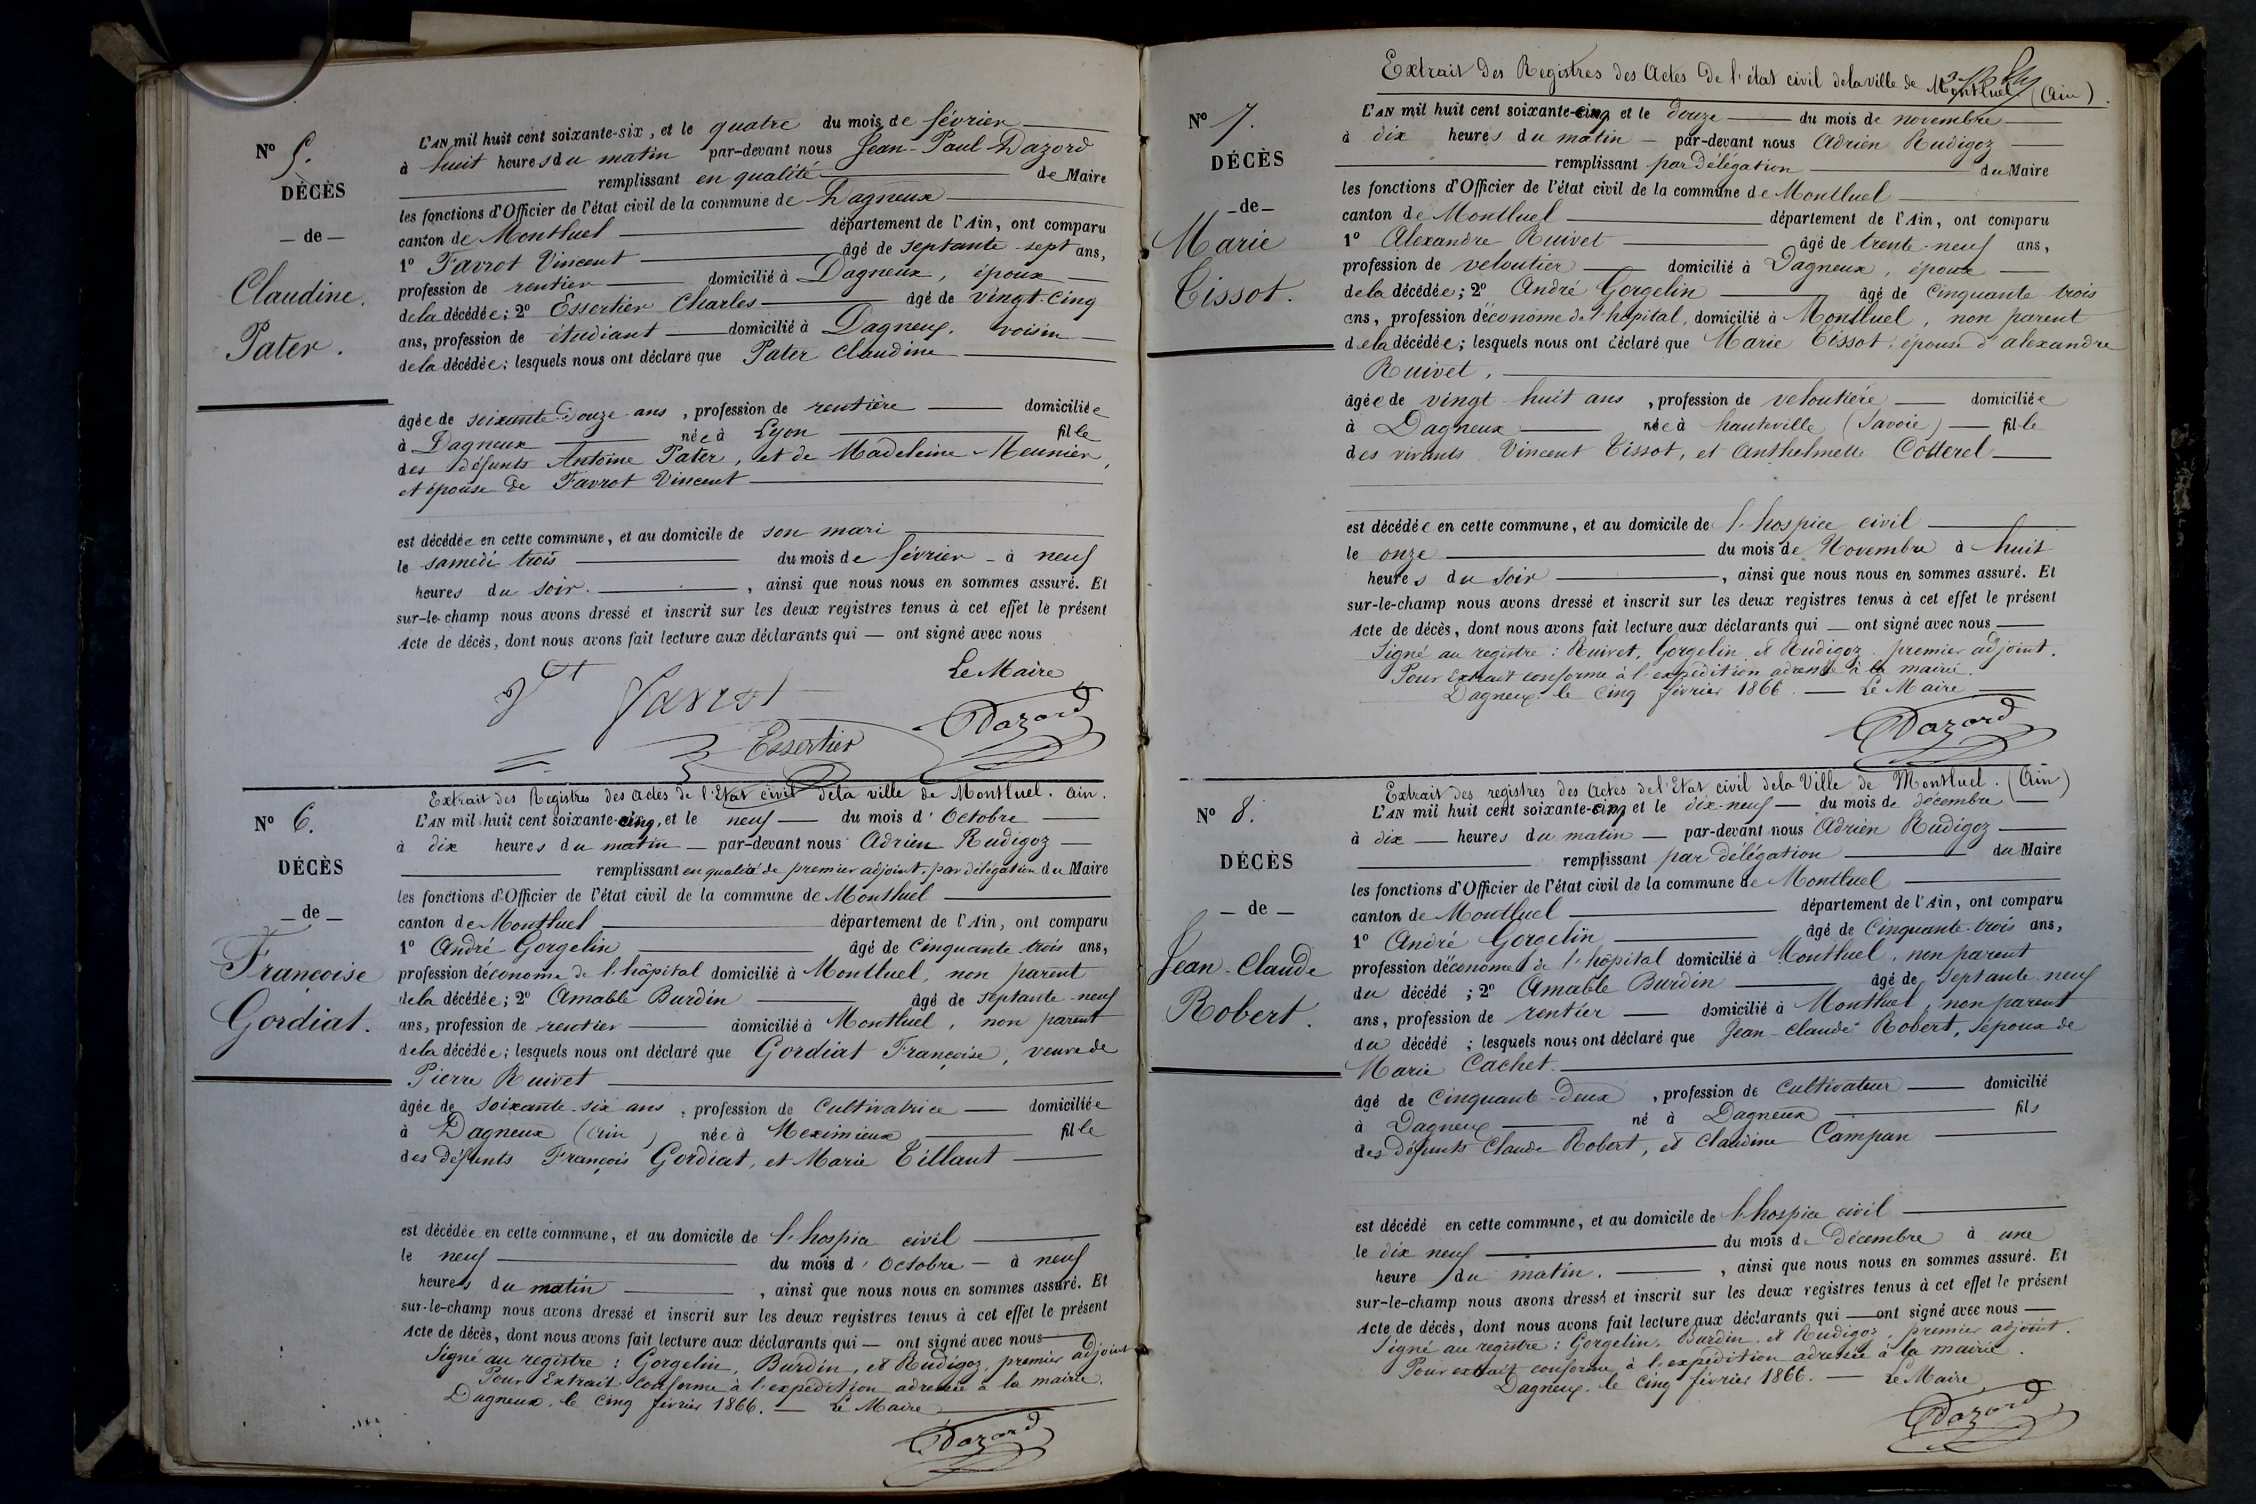 N° 5.
DÉCÈS
— de —
Claudine
Pater.
L'AN mil huit cent soixante-six, et le quatre du mois de février
à huit heures du matin par-devant nous Jean-Paul Dazord
remplissant en qualité de Maire
les fonctions d'Officier de l'état civil de la commune de Dagneux
canton de Montluel département de l'Ain, ont comparu
1° Favrot Vincent âgé de septante-sept ans,
profession de rentier domicilié à Dagneux, époux
de la décédée; 2° Essertier Charles âgé de vingt-cinq
ans, profession de étudiant domicilié à Dagneux. voisin
de la décédée; lesquels nous ont déclaré que Pater Claudine
âgée de soixante-douze ans, profession de rentière domiciliée
à Dagneux née à Lyon fille
des défunts Antoine Pater, et de Madeleine Meunier,
et épouse de Favrot Vincent
est décédée en cette commune, et au domicile de son mari
le samedi trois du mois de février - à neuf
heures du soir. , ainsi que nous nous en sommes assuré. Et
sur-le-champ nous avons dressé et inscrit sur les deux registres tenus à cet effet le présent
Acte de décès, dont nous avons fait lecture aux déclarants qui — ont signé avec nous
Le Maire
Favrot
Dazord
Essertier
N° 6.
DÉCÈS
— de —
Françoise
Gordiat.
Extrait des Registres des actes de l'Etat civil de la ville de Montluel. Ain.
L'AN mil huit cent soixante-cinq, et le neuf — du mois d'Octobre
à dix heures du matin — par-devant nous Adrien Rudigoz
remplissant en qualité de premier adjoint, par délégation du Maire
les fonctions d'Officier de l'état civil de la commune de Montluel
canton de Montluel département de l'Ain, ont comparu
1° André Gorgelin âgé de Cinquante-trois ans,
profession d'économe de l'hôpital domicilié à Montluel, non parent
de la décédée; 2° Amable Burdin âgé de septante-neuf
ans, profession de rentier domicilié à Montluel, non parent
de la décédée; lesquels nous ont déclaré que Gordiat Françoise, veuve de
Pierre Ruivet
âgée de soixante-six ans, profession de Cultivatrice domiciliée
à Dagneux (Ain) née à Meximieux fille
des défunts François Gordiat, et Marie Tillaut
est décédée en cette commune, et au domicile de l'hospice civil
le neuf du mois d'Octobre — à neuf
heures du matin , ainsi que nous nous en sommes assuré. Et
sur-le-champ nous avons dressé et inscrit sur les deux registres tenus à cet effet le présent
Acte de décès, dont nous avons fait lecture aux déclarants qui — ont signé avec nous
Signé au registre : Gorgelin, Burdin, et Rudigoz, premier adjoint
Pour Extrait conforme à l'expédition adressée à la mairie.
Dagneux, le cinq février 1866. — Le Maire
Dazord
Extrait des Registres des Actes de l'état civil de la ville de Montluel (Ain).
N° 7.
DÉCÈS
— de —
Marie
Tissot.
L'AN mil huit cent soixante-cinq et le douze du mois de novembre
à dix heures du matin — par-devant nous Adrien Rudigoz
remplissant par délégation du Maire
les fonctions d'Officier de l'état civil de la commune de Montluel
canton de Montluel département de l'Ain, ont comparu
1° Alexandre Ruivet âgé de trente-neuf ans,
profession de veloutier domicilié à Dagneux, époux
de la décédée; 2° André Gorgelin âgé de cinquante-trois
ans, profession d'économe de l'hôpital, domicilié à Montluel, non parent
de la décédée; lesquels nous ont déclaré que Marie Tissot, épouse d'alexandre
Ruivet,
âgée de vingt-huit ans, profession de veloutière domiciliée
à Dagneux née à hauteville (Savoie) fille
des vivants Vincent Tissot, et Anthelmette Cotterel
est décédée en cette commune, et au domicile de l'hospice civil
le onze du mois de Novembre à huit
heures du soir , ainsi que nous nous en sommes assuré. Et
sur-le-champ nous avons dressé et inscrit sur les deux registres tenus à cet effet le présent
Acte de décès, dont nous avons fait lecture aux déclarants qui — ont signé avec nous
Signé au registre : Ruivet, Gorgelin et Rudigoz premier adjoint.
Pour Extrait conforme à l'expédition adressée à la mairie.
Dagneux le cinq février 1866. — Le Maire
Dazord
N° 8.
DÉCÈS
— de —
Jean-Claude
Robert.
Extrait des registres des Actes de l'Etat civil de la Ville de Montluel. (Ain)
L'AN mil huit cent soixante-cinq et le dix-neuf — du mois de décembre
à dix — heures du matin — par-devant nous Adrien Rudigoz
remplissant par délégation du Maire
les fonctions d'Officier de l'état civil de la commune de Montluel
canton de Montluel département de l'Ain, ont comparu
1° André Gorgelin âgé de Cinquante-trois ans,
profession d'économe de l'hôpital domicilié à Montluel, non parent
du décédé ; 2° Amable Burdin âgé de septante-neuf
ans, profession de rentier domicilié à Montluel, non parent
du décédé ; lesquels nous ont déclaré que Jean-Claude Robert, sépoux de
Marie Cachet.
âgé de Cinquante-deux , profession de Cultivateur domicilié
à Dagneux né à Dagneux fils
des défunts Claude Robert, et Claudine Campan
est décédé en cette commune, et au domicile de l'hospice civil
le dix neuf du mois de Décembre à une
heure du matin. , ainsi que nous nous en sommes assuré. Et
sur-le-champ nous avons dressé et inscrit sur les deux registres tenus à cet effet le présent
Acte de décès, dont nous avons fait lecture aux déclarants qui — ont signé avec nous —
Signé au registre : Gorgelin, Burdin et Rudigoz, premier adjoint.
Pour extrait conforme à l'expédition adressée à la mairie.
Dagneux, le cinq février 1866. — Le Maire
Dazord